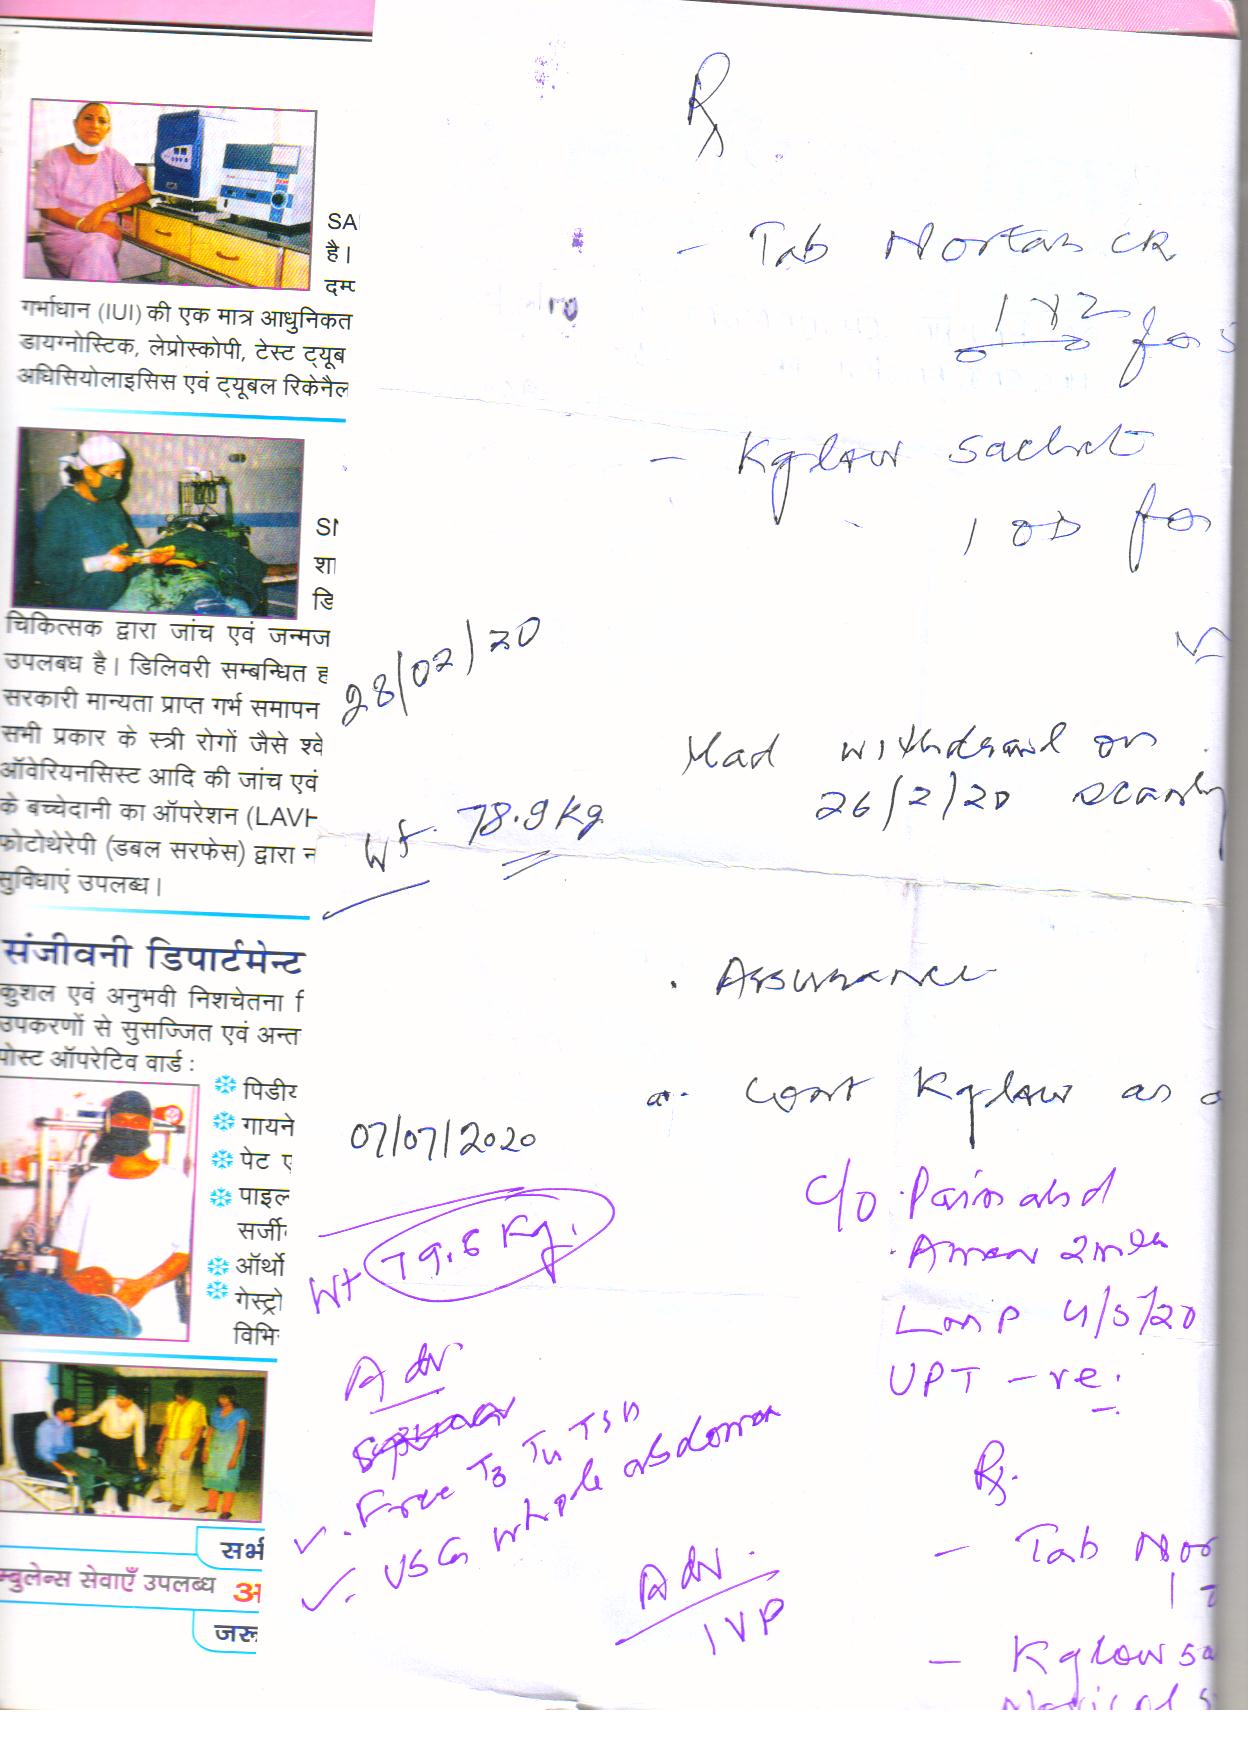 SA
है।
दम्प
गर्भाधान (IUI) की एक मात्र आधुनिकत
डायग्नोस्टिक, लेप्रोस्कोपी, टेस्ट ट्यूब
अधिसियोलाइसिस एवं ट्यूबल रिकेनैल
शा
डि
चिकित्सक द्वारा जांच एवं जन्मज
उपलबध है। डिलिवरी सम्बन्धित ह
सरकारी मान्यता प्राप्त गर्भ समापन
सभी प्रकार के स्त्री रोगों जैसे श्वे
ऑवेरियनसिस्ट आदि की जांच एवं
के बच्चेदानी का ऑपरेशन (LAVH
फोटोथेरेपी (डबल सरफेस) द्वारा न
सुविधाएं उपलब्ध।
संजीवनी डिपार्टमेन्ट
कुशल एवं अनुभवी निशचेतना f
उपकरणों से सुसज्जित एवं अन्त
पोस्ट ऑपरेटिव वार्ड :
पिडीय
गायने
पेट ए
पाइल
सर्जी
ऑर्थो
गेस्ट्रो
विभि
सभी
म्बुलेन्स सेवाएँ उपलब्ध अ
जरू
Rx
- Tab Nortas CR
1 x 2 for 5
- Kglow sachet
1 OD for
28/02/20
Had withdrawl on
26/2/20 scanty
Wt. 78.9 kg
. Assurance
Cont Kglow as
07/07/2020
C/O . Pain abd
Wt 79.8 Kg.
. Amen
LMP 4/5/20
UPT -ve.
Adv
. Free T3 T4 TSH
. USG whole abdomen
Rx.
- Tab Nor
Adv.
IVP
- Kglow sa